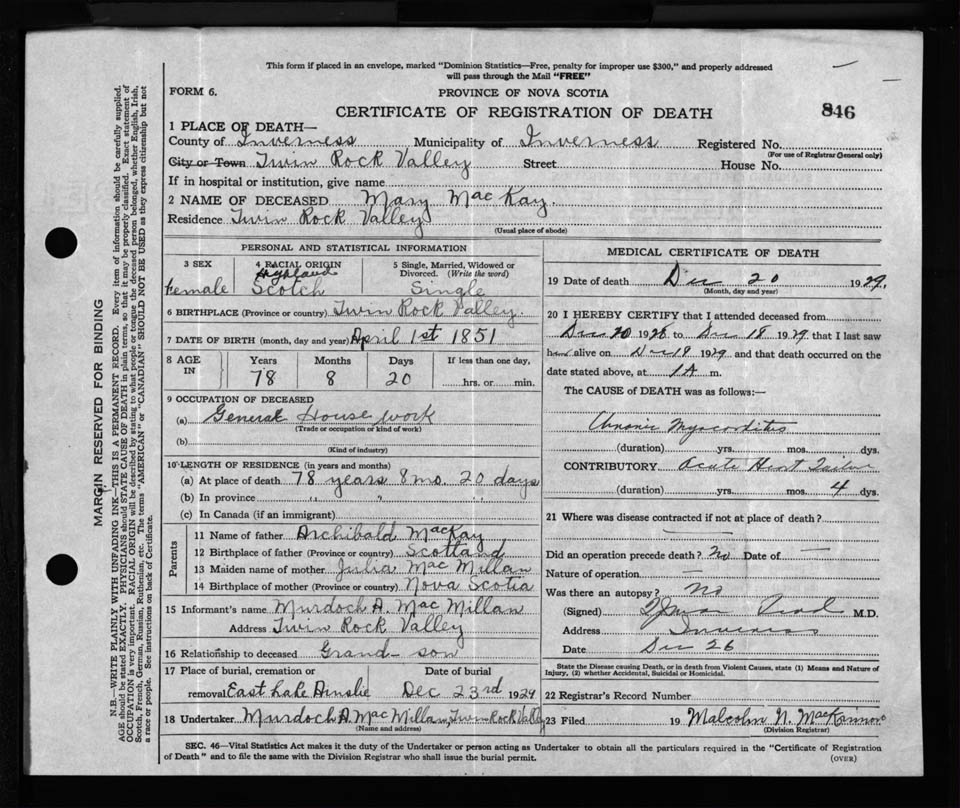 This form if placed in an envelope, marked "Dominion Statistics—Free, penalty for improper use $300," and properly addressed
will pass through the Mail "FREE"
FORM 6.
PROVINCE OF NOVA SCOTIA
CERTIFICATE OF REGISTRATION OF DEATH
846
1 PLACE OF DEATH—
County of Inverness Municipality of Inverness Registered No.
(For use of Registrar General only)
City or Town Twin Rock Valley Street House No.
If in hospital or institution, give name
2 NAME OF DECEASED Mary MacKay.
Residence Twin Rock Valley
(Usual place of abode)
PERSONAL AND STATISTICAL INFORMATION
3 SEX
Female
4 RACIAL ORIGIN
Highland
Scotch
5 Single, Married, Widowed or
Divorced. (Write the word)
Single
6 BIRTHPLACE (Province or country) Twin Rock Valley.
7 DATE OF BIRTH (month, day and year) April 1st 1851
8 AGE IN
Years Months Days If less than one day,
78 8 20 hrs. or min.
9 OCCUPATION OF DECEASED
(a) General House work
(Trade or occupation or kind of work)
(b)
(Kind of industry)
10 LENGTH OF RESIDENCE (in years and months)
(a) At place of death 78 years 8 mo. 20 days
(b) In province " " "
(c) In Canada (if an immigrant)
Parents
11 Name of father Archibald MacKay
12 Birthplace of father (Province or country) Scotland
13 Maiden name of mother Julia MacMillan
14 Birthplace of mother (Province or country) Nova Scotia
15 Informant's name Murdoch A. MacMillan
Address Twin Rock Valley
16 Relationship to deceased Grand-son
17 Place of burial, cremation or
removal East Lake Ainslie
Date of burial
Dec 23rd 1929
18 Undertaker Murdoch A. MacMillan, Twin Rock Valley
(Name and address)
MEDICAL CERTIFICATE OF DEATH
19 Date of death Dec 20 1929.
(Month, day and year)
20 I HEREBY CERTIFY that I attended deceased from
Dec 20 1928 to Dec 18 1929 that I last saw
h alive on Dec 18 1929 and that death occurred on the
date stated above, at 1 A m.
The CAUSE OF DEATH was as follows:—
Chronic Myocorditis
(duration) yrs. mos. dys.
CONTRIBUTORY Acute Heart Failure
(duration) yrs. mos. 4 dys.
21 Where was disease contracted if not at place of death?
Did an operation precede death? No Date of —
Nature of operation —
Was there an autopsy? No
(Signed) M.D.
Address Inverness
Date Dec 26
State the Disease causing Death, or in death from Violent Causes, state (1) Means and Nature of
Injury, (2) whether Accidental, Suicidal or Homicidal.
22 Registrar's Record Number
23 Filed 19 Malcolm N. MacKinnon
(Division Registrar)
SEC. 46—Vital Statistics Act makes it the duty of the Undertaker or person acting as Undertaker to obtain all the particulars required in the "Certificate of Registration
of Death" and to file the same with the Division Registrar who shall issue the burial permit.
(OVER)
MARGIN RESERVED FOR BINDING
N.B.—WRITE PLAINLY WITH UNFADING INK—THIS IS A PERMANENT RECORD. Every item of information should be carefully supplied.
AGE should be stated EXACTLY. PHYSICIANS should STATE CAUSE OF DEATH in plain terms, so that it may be properly classified. Exact statement of
OCCUPATION is very important. RACIAL ORIGIN will be described by stating to what people or tongue the deceased person belonged, whether English, Irish,
Scotch, French, German, Russian, Ruthenian, etc. The terms "AMERICAN" or "CANADIAN" SHOULD NOT BE USED as they express citizenship but not
a race or people. See instructions on back of Certificate.